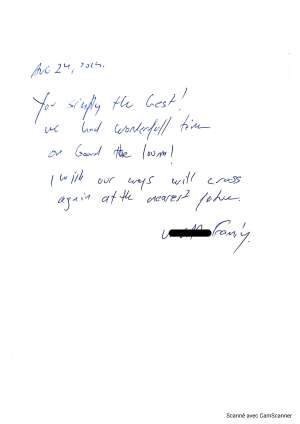 Aug 24, 2014.
You simply the best!
we had wonderfull time
on board the
I wish our ways will cross
again at the nearest future.
Family.
Scanné avec CamScanner